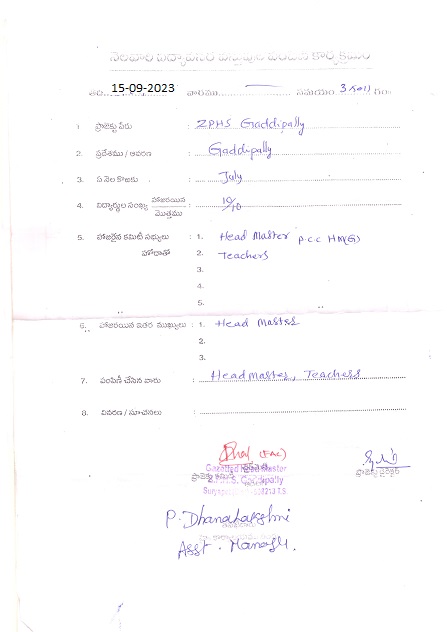 నెలవారి విద్యార్థుల వస్తువుల పంపిణి కార్యక్రమం
తేది 15-09-2023 వారము సమయం 3
1. ప్రాజెక్టు పేరు : ZPHS Gaddipally
2. ప్రదేశము / ఆవరణ : Gaddipally
3. ఏ నెల కొఱకు : July
4. విద్యార్థుల సంఖ్య హాజరయిన / మొత్తము : 10/10
5. హాజరైన కమిటీ సభ్యులు : 1. Head Master P.C.C HM(G)
హోదాతో 2. Teachers
3.
4.
5.
6. హాజరయిన ఇతర ముఖ్యులు : 1. Head Master
2.
3.
7. పంపిణీ చేసిన వారు : Headmaster, Teachers
8. వివరణ / సూచనలు :
(FAC)
Gazetted Head Master
Gaddipally
ప్రాజెక్టు డైరెక్టర్
P. Dhanalakshmi
Asst. Manager